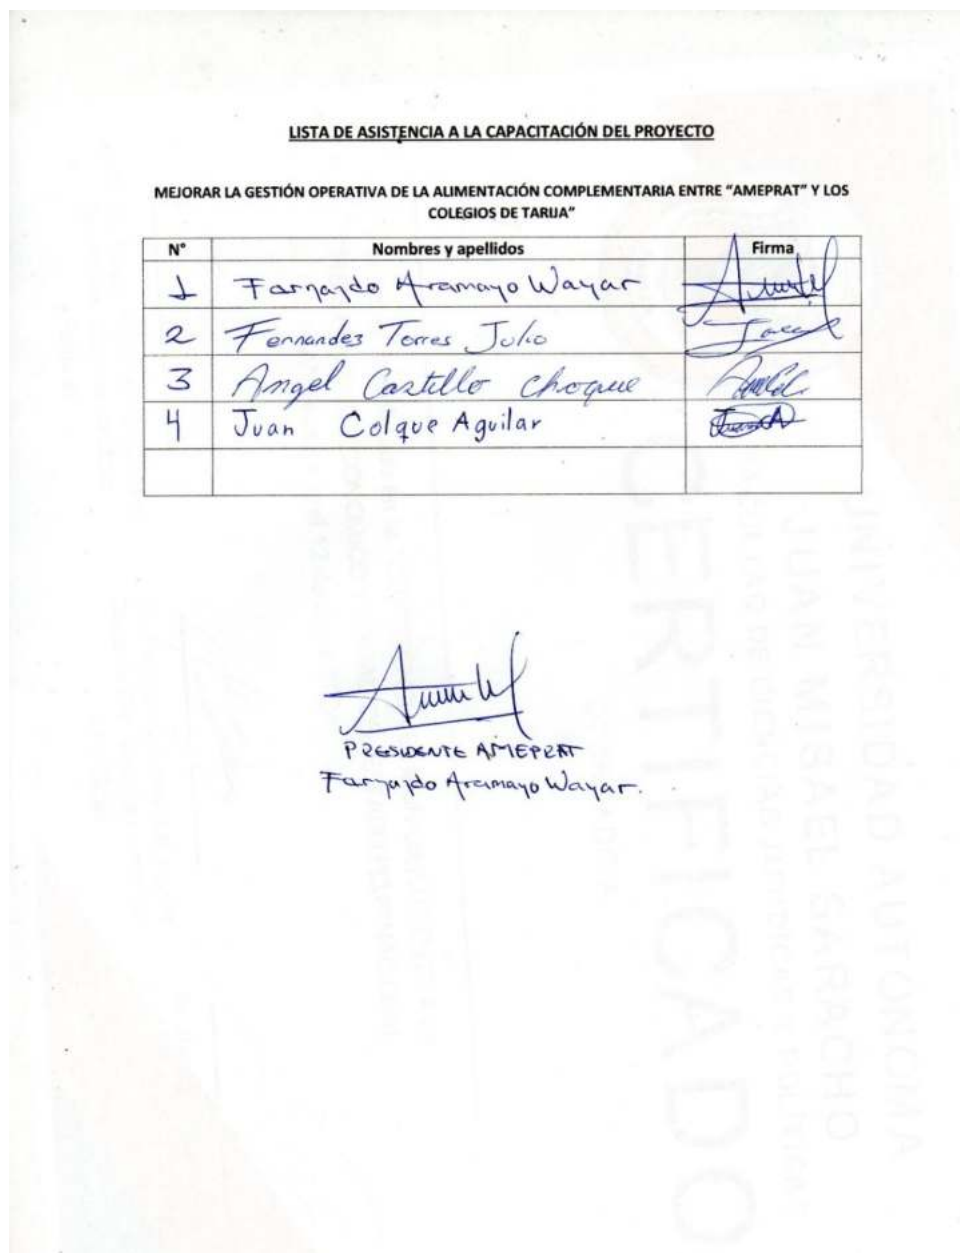 LISTA DE ASISTENCIA A LA CAPACITACIÓN DEL PROYECTO
MEJORAR LA GESTIÓN OPERATIVA DE LA ALIMENTACIÓN COMPLEMENTARIA ENTRE "AMEPRAT" Y LOS
COLEGIOS DE TARIJA"
N° Nombres y apellidos Firma
1 Fernando Aramayo Wayar
2 Fernandez Torres Julio
3 Angel Castillo Choque
4 Juan Colque Aguilar
PRESIDENTE AMEPRAT
Fernando Aramayo Wayar.
UNIVERSIDAD AUTÓNOMA
JUAN MISAEL SARACHO
CERTIFICADO